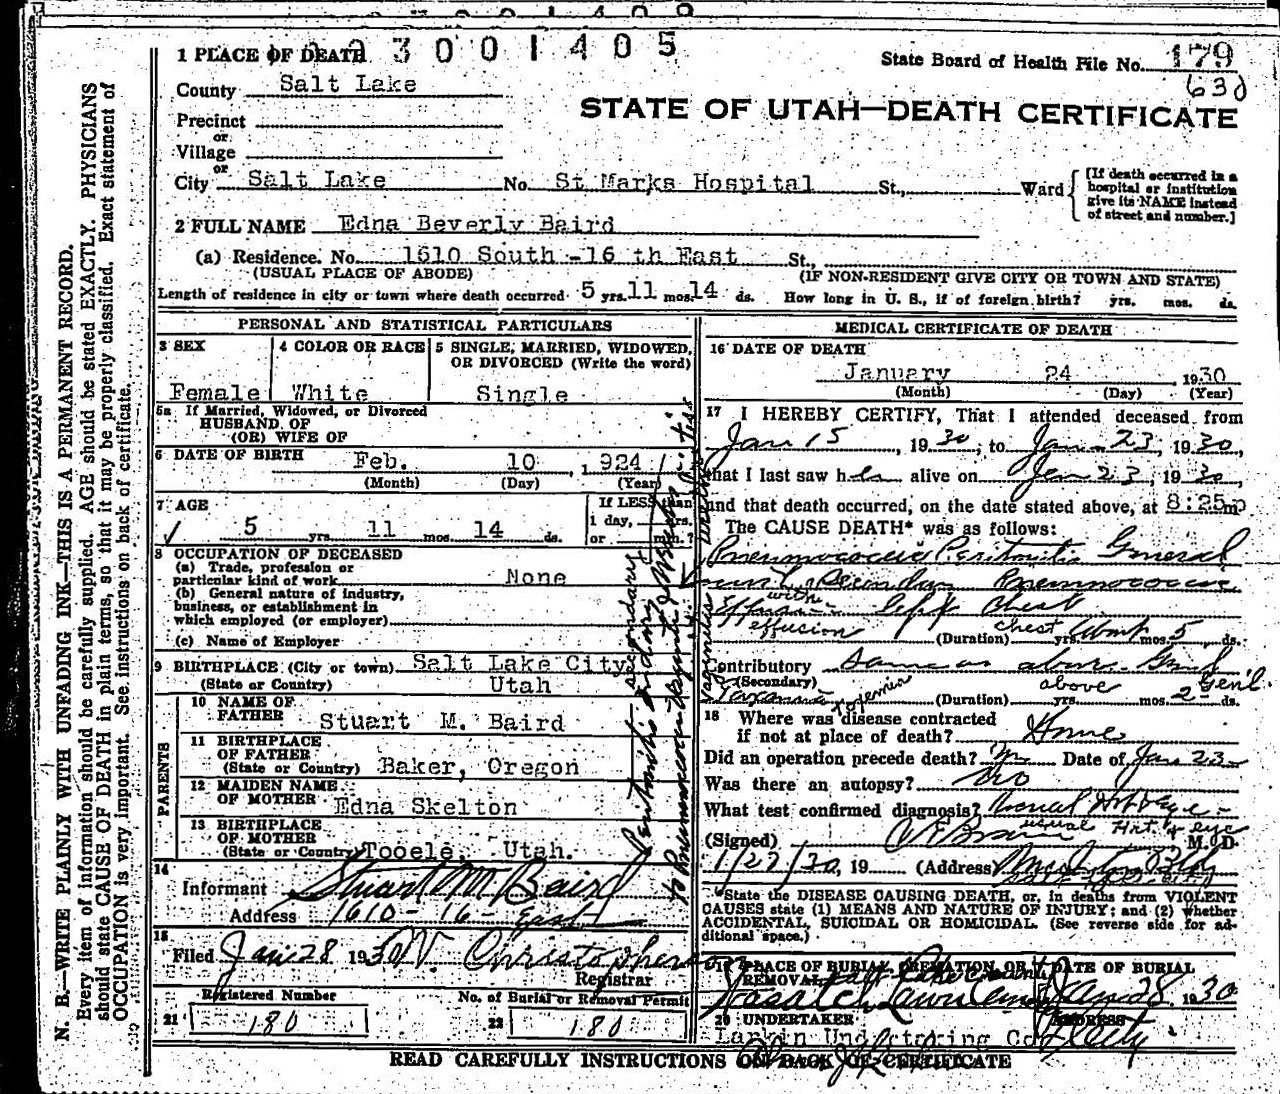 3 0 0 1 4 0 5
1 PLACE OF DEATH
State Board of Health File No. 179
630
County Salt Lake
STATE OF UTAH—DEATH CERTIFICATE
Precinct
or
Village
or
City Salt Lake No. St Marks Hospital St., Ward
[If death occurred in a hospital or institution give its NAME instead of street and number.]
2 FULL NAME Edna Beverly Baird
(a) Residence. No. 1610 South -16 th East St.,
(USUAL PLACE OF ABODE) (IF NON-RESIDENT GIVE CITY OR TOWN AND STATE)
Length of residence in city or town where death occurred 5 yrs. 11 mos. 14 ds. How long in U. S., if of foreign birth? yrs. mos. ds.
PERSONAL AND STATISTICAL PARTICULARS
3 SEX
Female
4 COLOR OR RACE
White
5 SINGLE, MARRIED, WIDOWED,
OR DIVORCED (Write the word)
Single
5a If Married, Widowed, or Divorced
HUSBAND OF
(OR) WIFE OF
6 DATE OF BIRTH Feb. 10 , 1924
(Month) (Day) (Year)
7 AGE
5 yrs. 11 mos. 14 ds.
If LESS than
1 day, hrs.
or min.?
8 OCCUPATION OF DECEASED
(a) Trade, profession or
particular kind of work None
(b) General nature of industry,
business, or establishment in
which employed (or employer)
(c) Name of Employer
9 BIRTHPLACE (City or town) Salt Lake City,
(State or Country) Utah
PARENTS
10 NAME OF
FATHER Stuart M. Baird
11 BIRTHPLACE
OF FATHER
(State or Country) Baker, Oregon
12 MAIDEN NAME
OF MOTHER Edna Skelton
13 BIRTHPLACE
OF MOTHER
(State or Country) Tooele, Utah.
14
Informant Stuart M Baird
Address 1610 - 16 - East
15
Filed Jan 28 1930 W. Christopherson
Registrar
Registered Number
21 180
No. of Burial or Removal Permit
22 180
MEDICAL CERTIFICATE OF DEATH
16 DATE OF DEATH
January 24 1930
(Month) (Day) (Year)
17 I HEREBY CERTIFY, That I attended deceased from
Jan 15, 1930, to Jan. 23, 1930,
that I last saw her alive on Jan 23, 1930,
and that death occurred, on the date stated above, at 8:25 m
The CAUSE DEATH* was as follows:
Pneumococcus Peritonitis General
Secondary Pneumococcus
with Left Chest
effusion chest
(Duration) yrs. mos. 5 ds.
Contributory Same as above Genl
(Secondary) above Gen'l.
Toxemia (Duration) yrs. mos. 2 ds.
18 Where was disease contracted
if not at place of death? Home
Did an operation precede death? Date of Jan 23
Was there an autopsy? No
What test confirmed diagnosis?
usual Hist. & eye
(Signed) M. D.
1/27/30, 19 (Address)
*State the DISEASE CAUSING DEATH, or, in deaths from VIOLENT
CAUSES state (1) MEANS AND NATURE OF INJURY; and (2) whether
ACCIDENTAL, SUICIDAL OR HOMICIDAL. (See reverse side for ad-
ditional space.)
19 PLACE OF BURIAL, CREMATION, OR
REMOVAL
Wasatch Lawn
DATE OF BURIAL
Jan 28 1930
20 UNDERTAKER
Larkin Undertaking Co
ADDRESS
City
Peritonitis secondary
to Pneumococcus
Vaginitis
READ CAREFULLY INSTRUCTIONS ON BACK OF CERTIFICATE
N. B.—WRITE PLAINLY WITH UNFADING INK—THIS IS A PERMANENT RECORD.
Every item of information should be carefully supplied. AGE should be stated EXACTLY. PHYSICIANS
should state CAUSE OF DEATH in plain terms, so that it may be properly classified. Exact statement of
OCCUPATION is very important. See instructions on back of certificate.